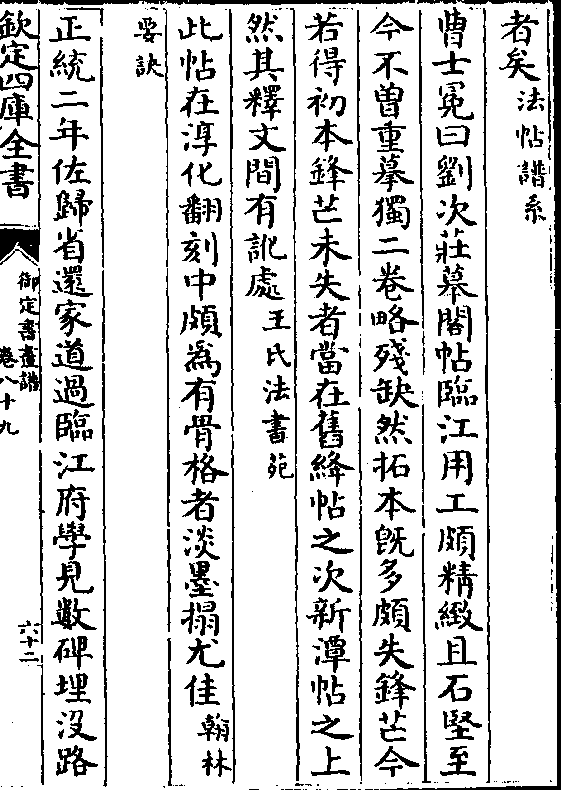 者矣法帖譜系
曹士冕曰劉次莊摹閣帖臨江用工頗精緻且石堅至
今不曾重摹獨二卷略殘缺然拓本既多頗失鋒芒今
若得初本鋒芒未失者當在舊絳帖之次新潭帖之上
然其釋文間有訛處王氏法書苑
此帖在淳化翻刻中頗為有骨格者淡墨搨尤佳翰林
要訣
正統二年佐歸省還家道過臨江府學見數碑埋沒路
欽定四庫全書
御定書畫譜
卷八十九
六十二